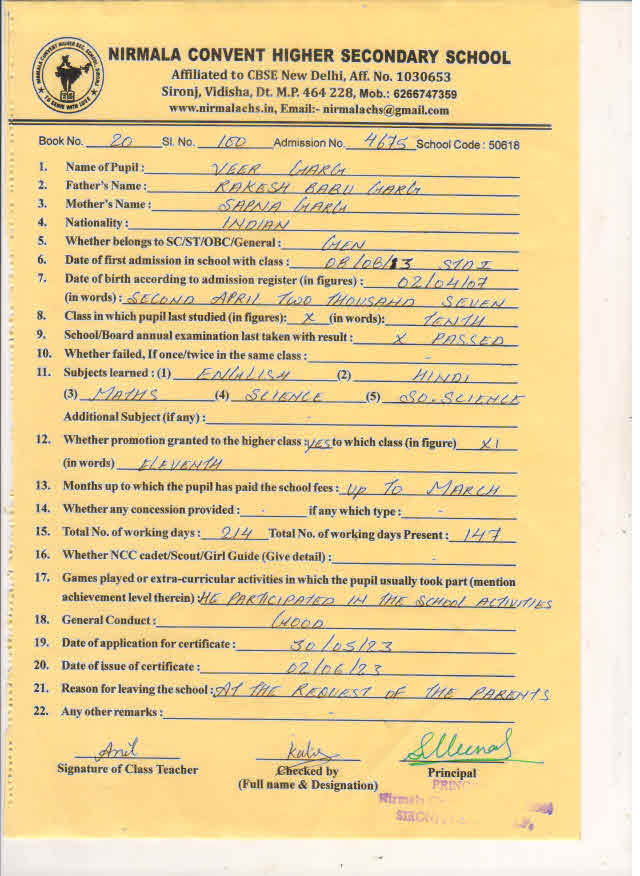 NIRMALA CONVENT HIGHER SEC. SCHOOL SIRONJ
TO SERVE WITH LOVE
NIRMALA CONVENT HIGHER SECONDARY SCHOOL
Affiliated to CBSE New Delhi, Aff. No. 1030653
Sironj, Vidisha, Dt. M.P. 464 228, Mob.: 6266747359
www.nirmalachs.in, Email:- nirmalachs@gmail.com
Book No. 20 Sl. No. 100 Admission No. 4675 School Code : 50618
1. Name of Pupil : VEER GARG
2. Father's Name : RAKESH BABU GARG
3. Mother's Name : SAPNA GARG
4. Nationality : INDIAN
5. Whether belongs to SC/ST/OBC/General : GEN
6. Date of first admission in school with class : 08/06/13 STD I
7. Date of birth according to admission register (in figures) : 02/04/07
(in words) : SECOND APRIL TWO THOUSAND SEVEN
8. Class in which pupil last studied (in figures): X (in words): TENTH
9. School/Board annual examination last taken with result : X PASSED
10. Whether failed, If once/twice in the same class : -
11. Subjects learned : (1) ENGLISH (2) HINDI
(3) MATHS (4) SCIENCE (5) SO. SCIENCE
Additional Subject (if any) : -
12. Whether promotion granted to the higher class : yes to which class (in figure) XI
(in words) ELEVENTH
13. Months up to which the pupil has paid the school fees : UP TO MARCH
14. Whether any concession provided : - if any which type : -
15. Total No. of working days : 214 Total No. of working days Present : 147
16. Whether NCC cadet/Scout/Girl Guide (Give detail) : -
17. Games played or extra-curricular activities in which the pupil usually took part (mention
achievement level therein) : HE PARTICIPATED IN THE SCHOOL ACTIVITIES
18. General Conduct : GOOD
19. Date of application for certificate : 30/05/23
20. Date of issue of certificate : 02/06/23
21. Reason for leaving the school : AT THE REQUEST OF THE PARENTS
22. Any other remarks : -
Anil
Signature of Class Teacher Checked by Principal
(Full name & Designation)
PRINC
Nirmala
SIRONJ